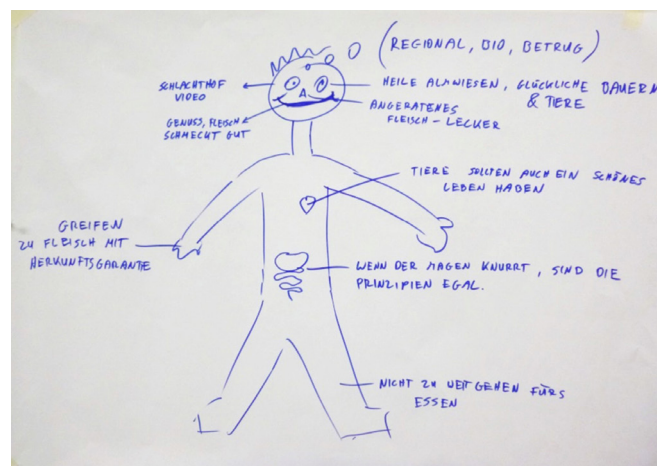 (REGIONAL, BIO, BETRUG)
SCHLACHTHOF
VIDEO
HEILE ALMWIESEN, GLÜCKLICHE BAUERN
& TIERE
GENUSS, FLEISCH
SCHMECKT GUT
ANGERATENES
FLEISCH – LECKER
TIERE SOLLTEN AUCH EIN SCHÖNES
LEBEN HABEN
GREIFEN
ZU FLEISCH MIT
HERKUNFTSGARANTIE
WENN DER MAGEN KNURRT, SIND DIE
PRINZIPIEN EGAL.
NICHT ZU WEIT GEHEN FÜRS
ESSEN